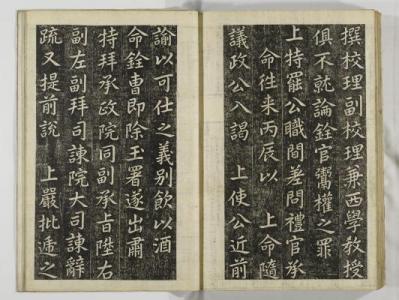 撰校理副校理兼西學教授
俱不就論銓官鬻權之罪
上特罷公職間差問禮官承
命往来丙辰以　上命隨
議政公入謁　上使公近前
諭以可仕之義別飮以酒
命銓曺即除玉署遂出肅
特拜承政院同副承旨陞右
副左副拜司諫院大司諫辭
疏又提前說　上嚴批逓之